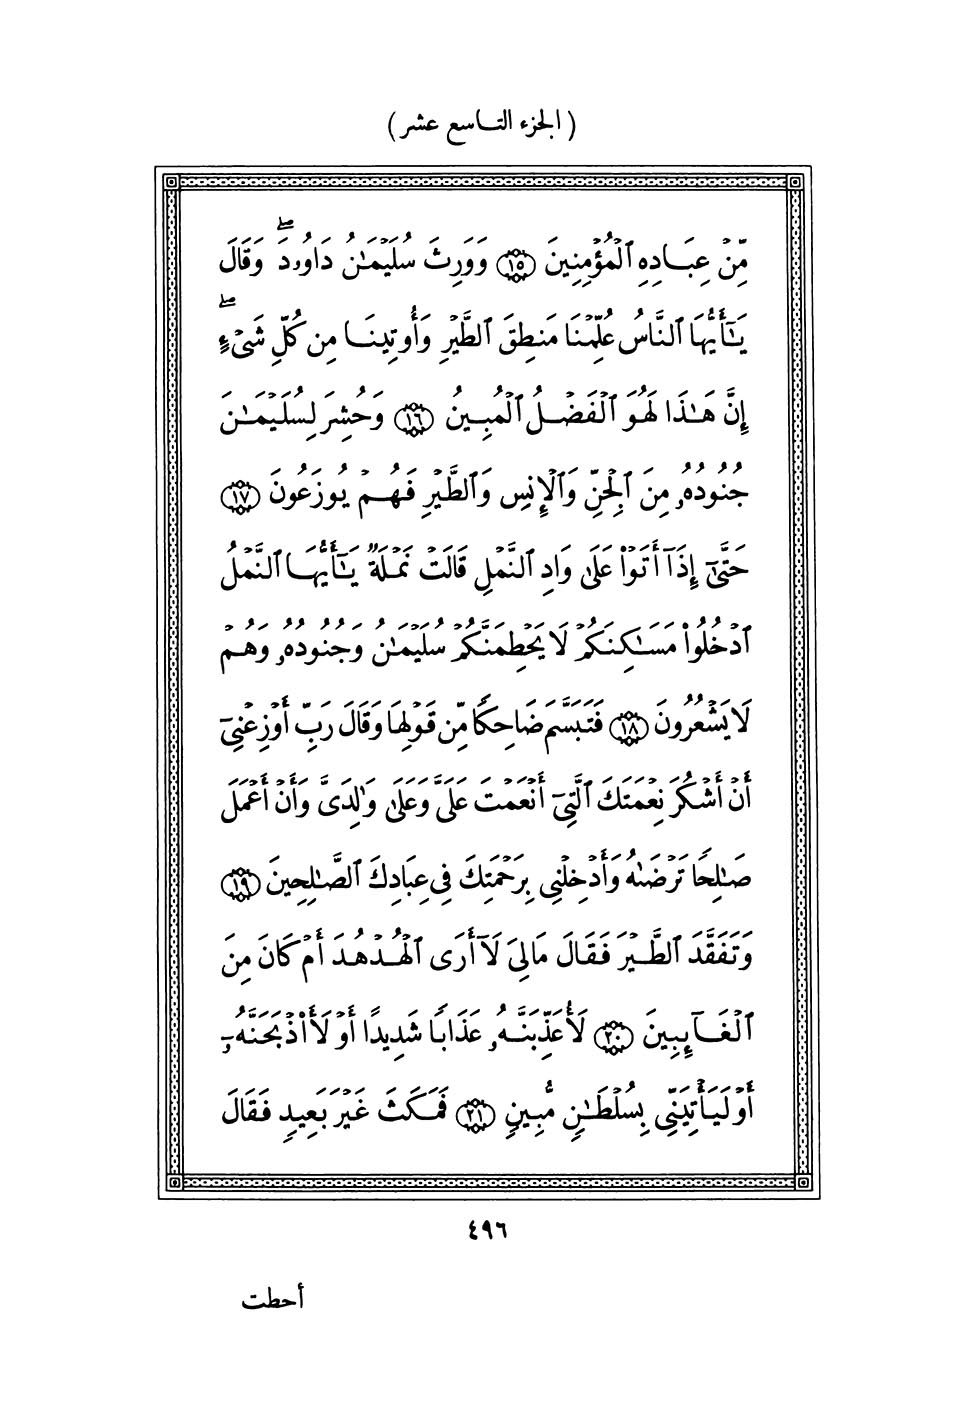 (الجزء التاسع عشر)
مِّنْ عِبَادِهِ ٱلْمُؤْمِنِينَ ﴿١٥﴾ وَوَرِثَ سُلَيْمَـٰنُ دَاوُۥدَ ۖ وَقَالَ
يَـٰٓأَيُّهَا ٱلنَّاسُ عُلِّمْنَا مَنطِقَ ٱلطَّيْرِ وَأُوتِينَا مِن كُلِّ شَىْءٍ ۖ
إِنَّ هَـٰذَا لَهُوَ ٱلْفَضْلُ ٱلْمُبِينُ ﴿١٦﴾ وَحُشِرَ لِسُلَيْمَـٰنَ
جُنُودُهُۥ مِنَ ٱلْجِنِّ وَٱلْإِنسِ وَٱلطَّيْرِ فَهُمْ يُوزَعُونَ ﴿١٧﴾
حَتَّىٰٓ إِذَآ أَتَوْا۟ عَلَىٰ وَادِ ٱلنَّمْلِ قَالَتْ نَمْلَةٌ يَـٰٓأَيُّهَا ٱلنَّمْلُ
ٱدْخُلُوا۟ مَسَـٰكِنَكُمْ لَا يَحْطِمَنَّكُمْ سُلَيْمَـٰنُ وَجُنُودُهُۥ وَهُمْ
لَا يَشْعُرُونَ ﴿١٨﴾ فَتَبَسَّمَ ضَاحِكًا مِّن قَوْلِهَا وَقَالَ رَبِّ أَوْزِعْنِىٓ
أَنْ أَشْكُرَ نِعْمَتَكَ ٱلَّتِىٓ أَنْعَمْتَ عَلَىَّ وَعَلَىٰ وَٰلِدَىَّ وَأَنْ أَعْمَلَ
صَـٰلِحًا تَرْضَىٰهُ وَأَدْخِلْنِى بِرَحْمَتِكَ فِى عِبَادِكَ ٱلصَّـٰلِحِينَ ﴿١٩﴾
وَتَفَقَّدَ ٱلطَّيْرَ فَقَالَ مَالِىَ لَآ أَرَى ٱلْهُدْهُدَ أَمْ كَانَ مِنَ
ٱلْغَآئِبِينَ ﴿٢٠﴾ لَأُعَذِّبَنَّهُۥ عَذَابًا شَدِيدًا أَوْ لَأَا۟ذْبَحَنَّهُۥٓ
أَوْ لَيَأْتِيَنِّى بِسُلْطَـٰنٍ مُّبِينٍ ﴿٢١﴾ فَمَكَثَ غَيْرَ بَعِيدٍ فَقَالَ
٤٩٦
أحطت